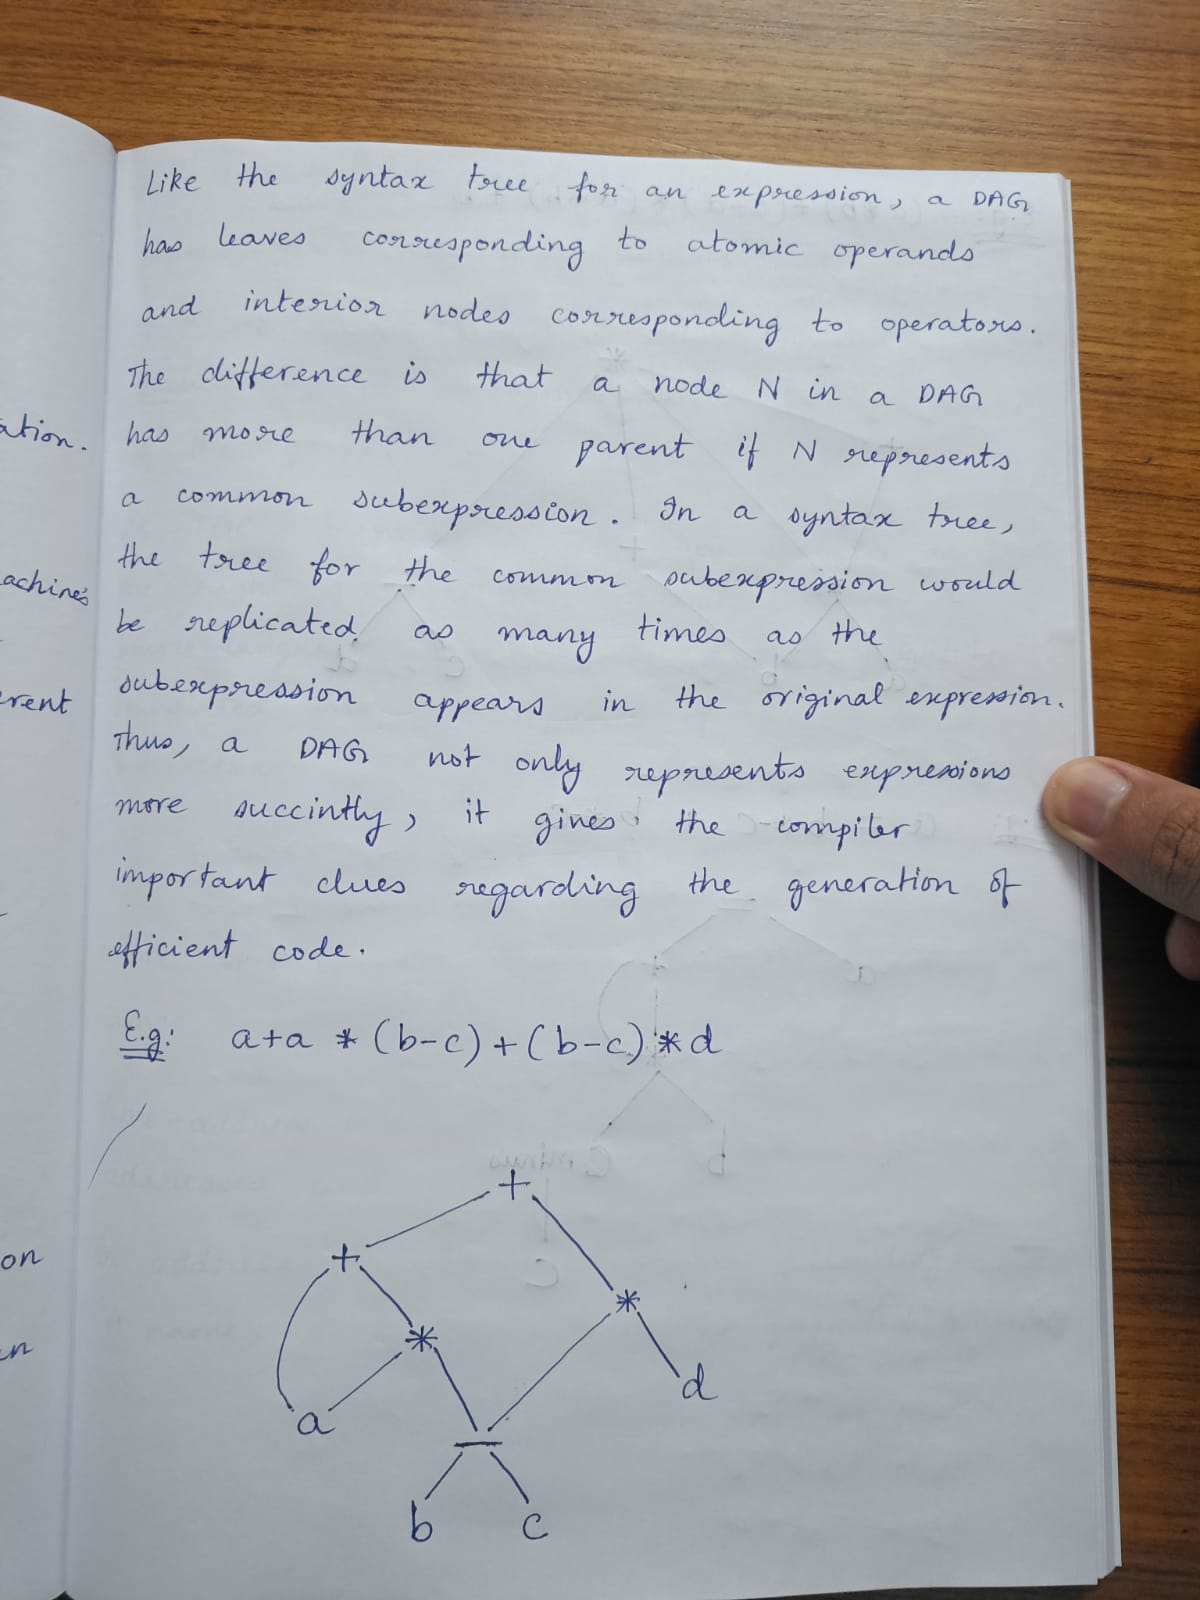 Like the syntax tree for an expression, a DAG
has leaves corresponding to atomic operands
and interior nodes corresponding to operators.
The difference is that a node N in a DAG
has more than one parent if N represents
a common subexpression. In a syntax tree,
the tree for the common subexpression would
be replicated as many times as the
subexpression appears in the original expression.
Thus, a DAG not only represents expressions
more succintly, it gives the compiler
important clues regarding the generation of
efficient code.
E.g: a+a * (b-c) + (b-c) * d
+
+
*
*
a
d
-
b c
ation.
achines
erent
on
en